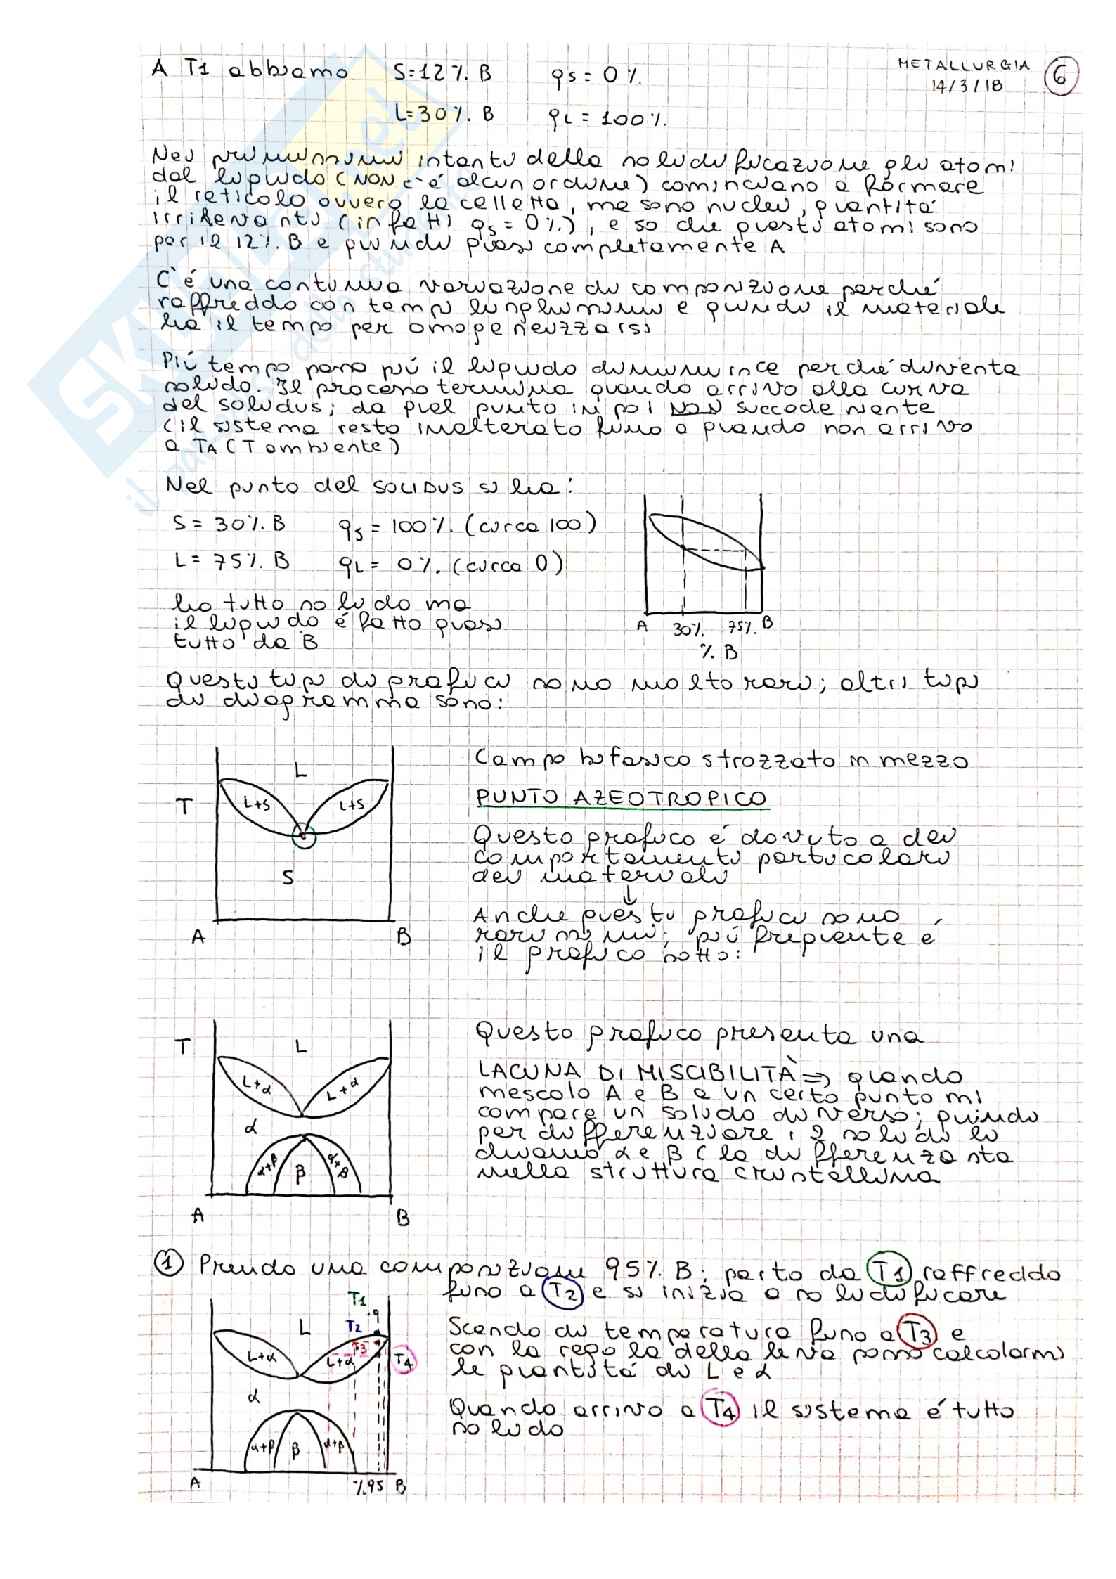 METALLURGIA
14/3/18
6
A T1 abbiamo S=12%. B qs = 0%.
L=30%. B qL = 100%.
Nei primissimi istanti della solidificazione gli atomi
dal liquido (NON c'è alcun ordine) cominciano a formare
il reticolo ovvero la celletta, ma sono nuclei, quantità
irrilevanti (infatti qs = 0%.), e so che questi atomi sono
per il 12%. B e quindi quasi completamente A
C'è una continua variazione di composizione perché
raffreddo con tempi lunghissimi e quindi il materiale
ha il tempo per omogeneizzarsi
Più tempo passa più il liquido diminuisce perché diventa
solido. Il processo termina quando arrivo alla curva
del solidus; da quel punto in poi NON succede niente
(il sistema resta inalterato fino a quando non arrivo
a TA (T ambiente)
Nel punto del SOLIDUS si ha:
S = 30%. B qs = 100%. (circa 100)
L = 75%. B qL = 0%. (circa 0)
ho tutto solido ma
il liquido è fatto quasi
tutto da B
A 30%. 75%. B
%. B
Questi tipi di grafici sono molto rari; altri tipi
di diagramma sono:
L
T
L+S
L+S
S
A
B
Campo bifasico strozzato in mezzo
PUNTO AZEOTROPICO
Questo grafico è dovuto a dei
comportamenti particolari
dei materiali
↓
Anche questi grafici sono
rarissimi; più frequente è
il grafico sotto:
T
L
L+α
L+α
α
α+β
β
α+β
A
B
Questo grafico presenta una
LACUNA DI MISCIBILITÀ ⇒ quando
mescolo A e B a un certo punto mi
compare un solido diverso; quindi
per differenziare i 2 solidi li
chiamo α e β (la differenza sta
nella struttura cristallina
1 Prendo una composizione 95%. B: parto da T1 raffreddo
fino a T2 e si inizia a solidificare
Scendo di temperatura fino a T3 e
con la regola della leva posso calcolarmi
le quantità di L e α
Quando arrivo a T4 il sistema è tutto
solido
T1
T2
L
T3
T4
L+α
L+α
α
α+β
β
α+β
A
%.95
B